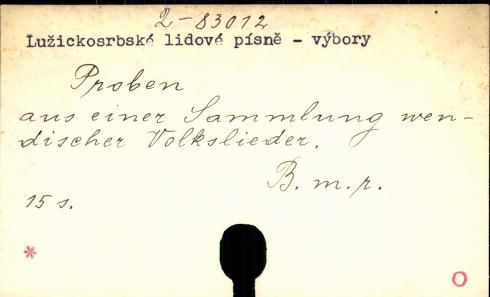 2-83012
Lužickosrbské lidové písně - výbory
Proben
aus einer Sammlung wen-
discher Volkslieder.
B. m. r.
15 s.
*
O